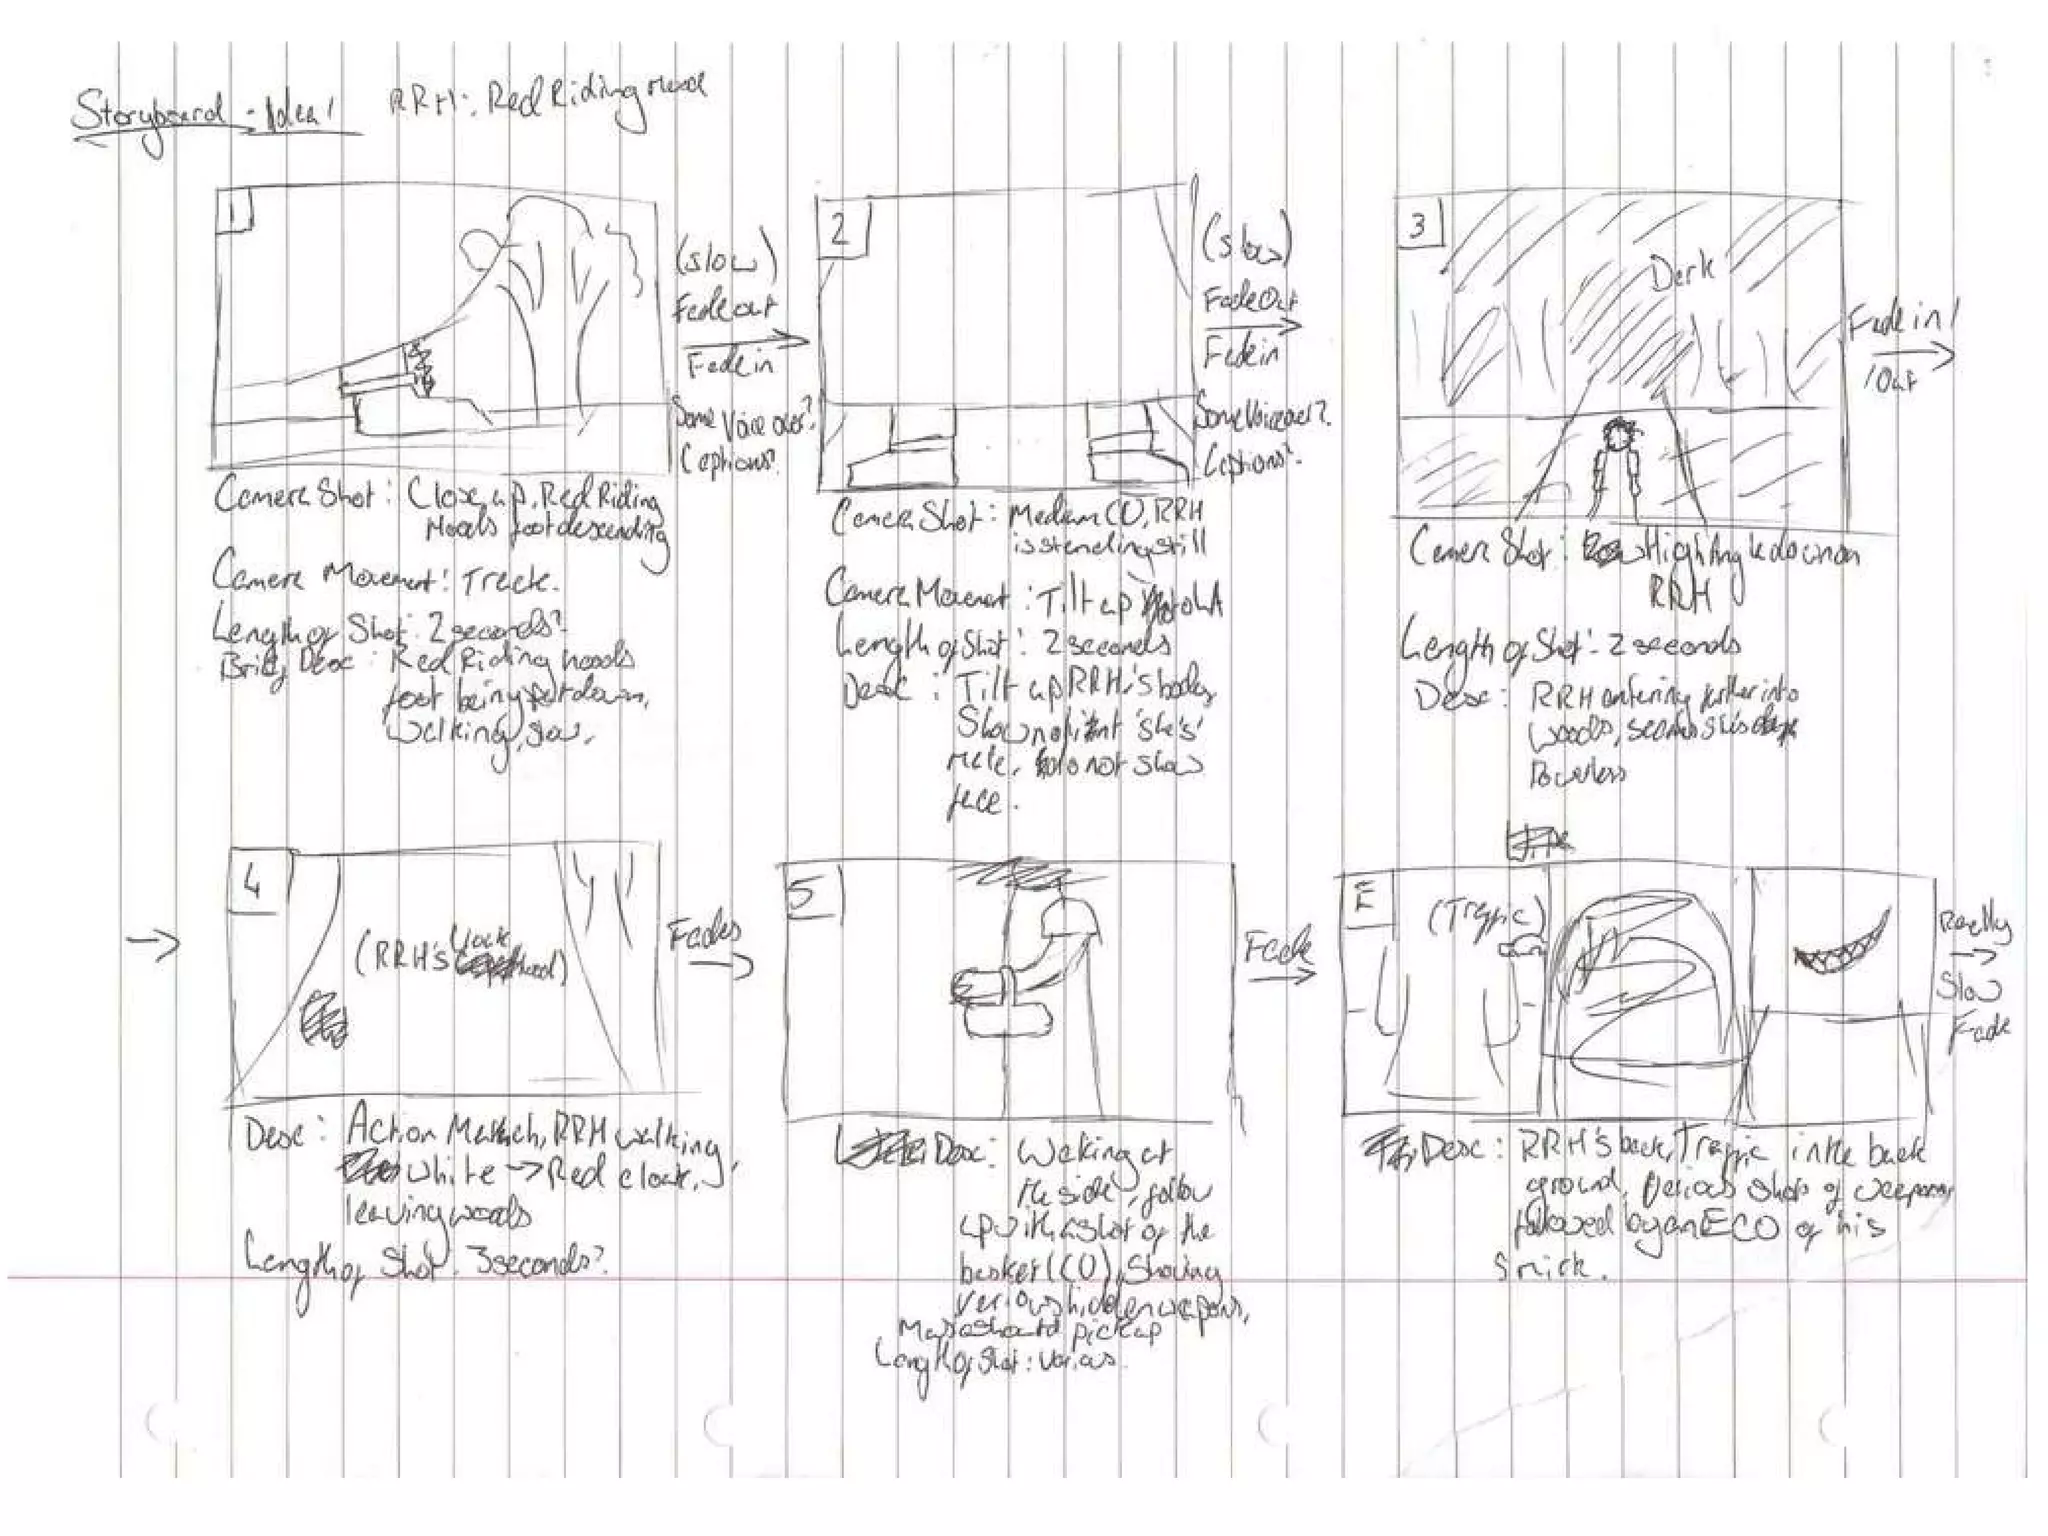 Storyboard - Idea 1
RRH: Red Riding Hood
1
(slow)
Fade out
Fade in
Some Voice over?
Captions?
Camera Shot: Close up, Red Riding
Hoods foot descending
Camera Movement: Track.
Length of Shot: 2 seconds?
Brief Desc: Red Riding hoods
foot being put down,
walking, slow.
2
(slow)
Fade Out
Fade in
Some Voice over?
Captions?
Camera Shot: Medium CU, RRH
is standing still
Camera Movement: Tilt up to LA
Length of Shot: 2 seconds
Desc: Tilt up RRH's body,
Show no hint 'she's'
male, do not show
face.
3
Dark
Fade in/
/Out
Camera Shot: High Angle down on
RRH
Length of Shot: 2 seconds
Desc: RRH entering further into
woods, seems she's
Powerless
4
(RRH's Cloak
hood)
Fades
Desc: Action Match, RRH walking,
white -> Red cloak,
leaving woods
Length of Shot: 3 seconds?
5
Fade
Desc: Walking at
the side, follow
up with a shot of the
basket (CU), Showing
various hidden weapons,
Maso should pick up
Length of Shot: Various.
E
(Traffic)
Really
Slow
Fade
Desc: RRH's back, Traffic in the back
ground, Various shots of weapons,
followed by an ECU of his
smirk.